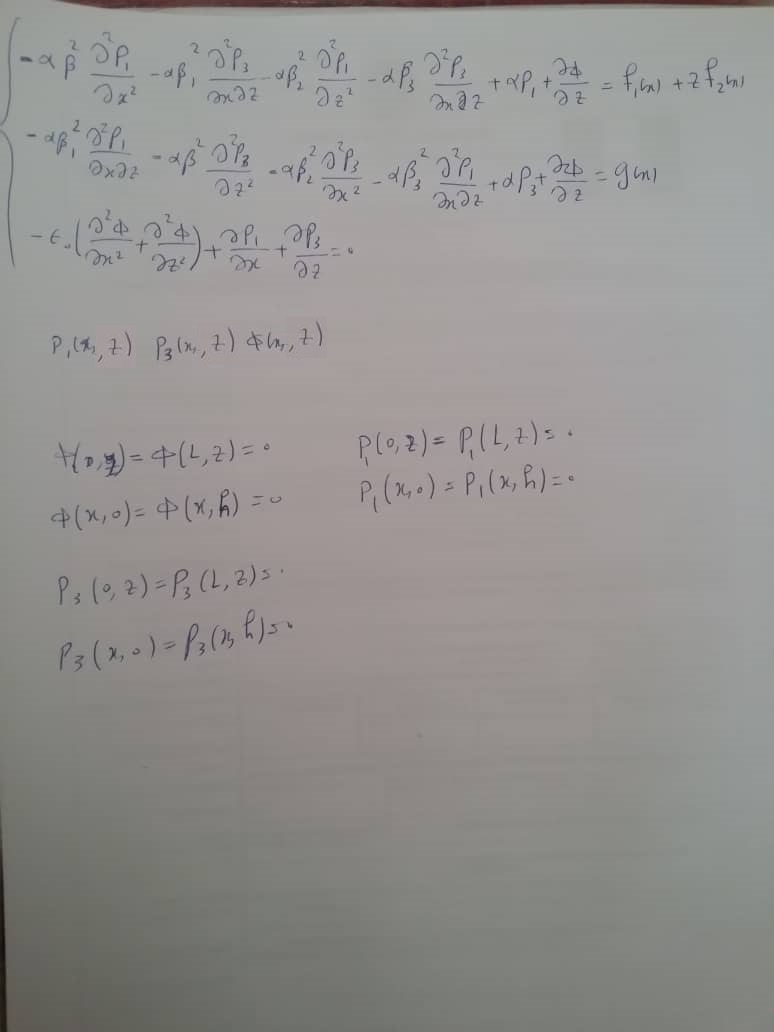 -αβ² ∂²P₁/∂x² - αβ₁² ∂²P₃/∂x∂z - αβ₂² ∂²P₁/∂z² - αβ₃² ∂²P₃/∂x∂z + αP₁ + ∂Φ/∂z = f₁(x) + z f₂(x)
-αβ₁² ∂²P₁/∂x∂z - αβ² ∂²P₃/∂z² - αβ₂² ∂²P₃/∂x² - αβ₃² ∂²P₁/∂x∂z + αP₃ + ∂Φ/∂z = g(x)
-ϵ₀(∂²Φ/∂x² + ∂²Φ/∂z²) + ∂P₁/∂x + ∂P₃/∂z = 0
P₁(x, z) P₃(x, z) Φ(x, z)
Φ(0,z) = Φ(L,z) = 0 P₁(0,z) = P₁(L,z) = 0
Φ(x,0) = Φ(x,h) = 0 P₁(x,0) = P₁(x,h) = 0
P₃(0,z) = P₃(L,z) = 0
P₃(x,0) = P₃(x,h) = 0